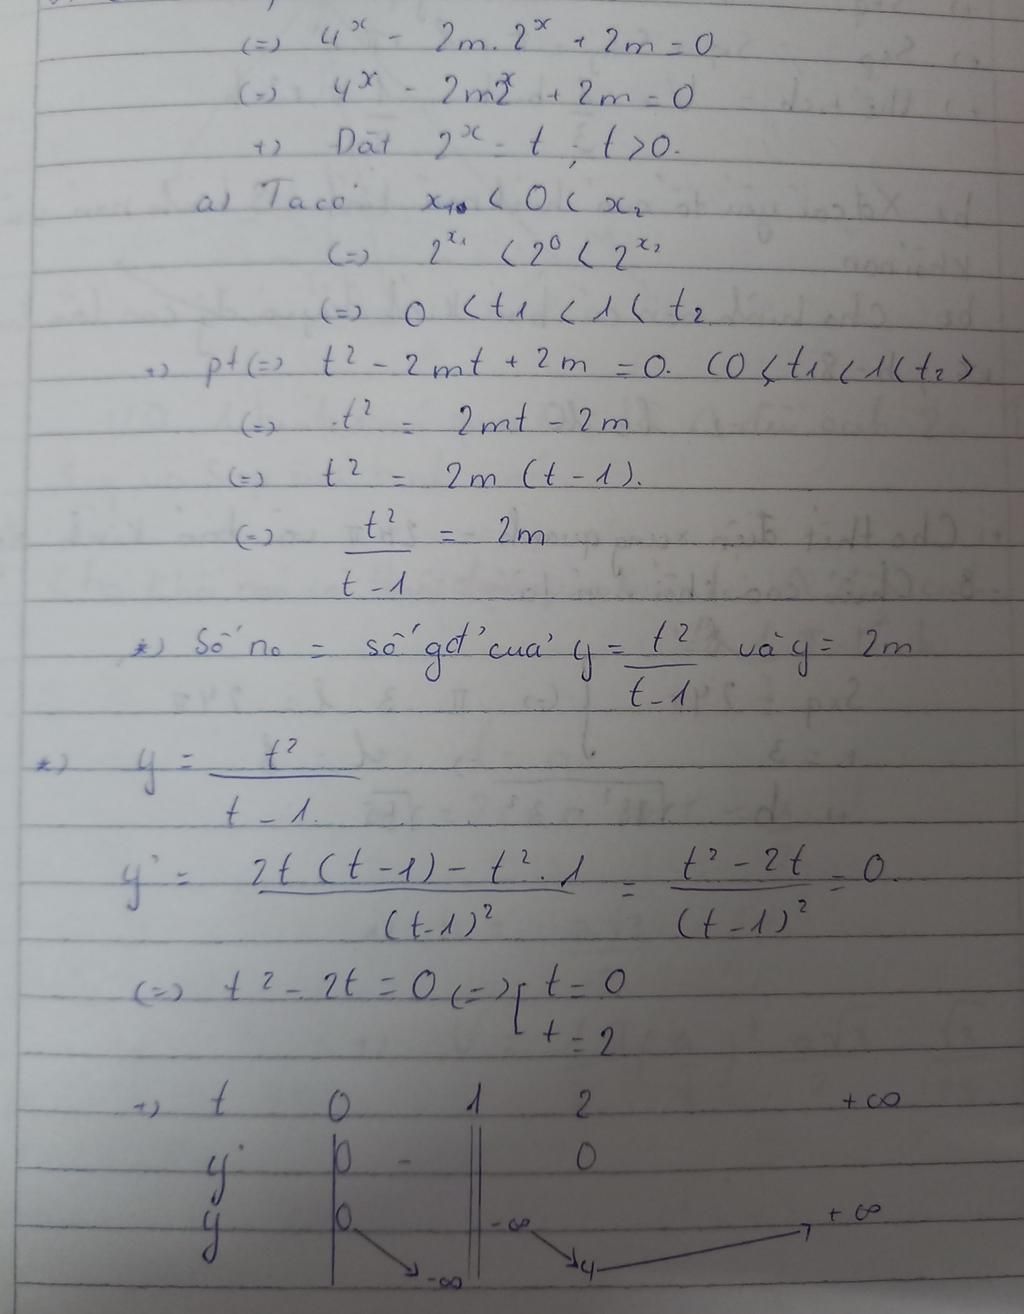 (=) 4^x - 2m. 2^x + 2m = 0
(=) 4^x - 2m2^x + 2m = 0
+) Đặt 2^x = t ; t > 0.
a) Ta có x₁ < 0 < x₂
(=) 2^x₁ < 2^0 < 2^x₂
(=) 0 < t1 < 1 < t₂
+) pt (=) t² - 2mt + 2m = 0. (0 < t1 < 1 < t₂)
(=) t² = 2mt - 2m
(=) t² = 2m (t - 1).
(=) t²/(t - 1) = 2m
*) Số no = số gđ của y = t²/(t-1) và y = 2m
*) y = t²/(t - 1.)
y' = (2t (t-1) - t². 1)/(t-1)² = (t² - 2t)/(t-1)² = 0.
(=) t² - 2t = 0 (=) [ t = 0
t = 2
+) t 0 1 2 +∞
y' 0 - 0
y 0 -∞ -∞ 4 +∞